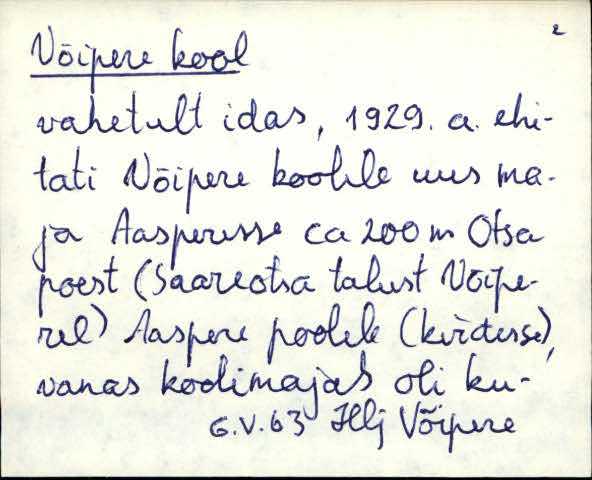 2
Võipere kool
vahetult idas, 1929. a. ehi-
tati Võipere koolile uus ma-
ja Aasperesse ca 200 m Otsa
poest (Saareotsa talust Võipe-
rel) Aaspere poole (kirdesse),
vanas koolimajas oli ku-
6.V.63 Hlj Võipere